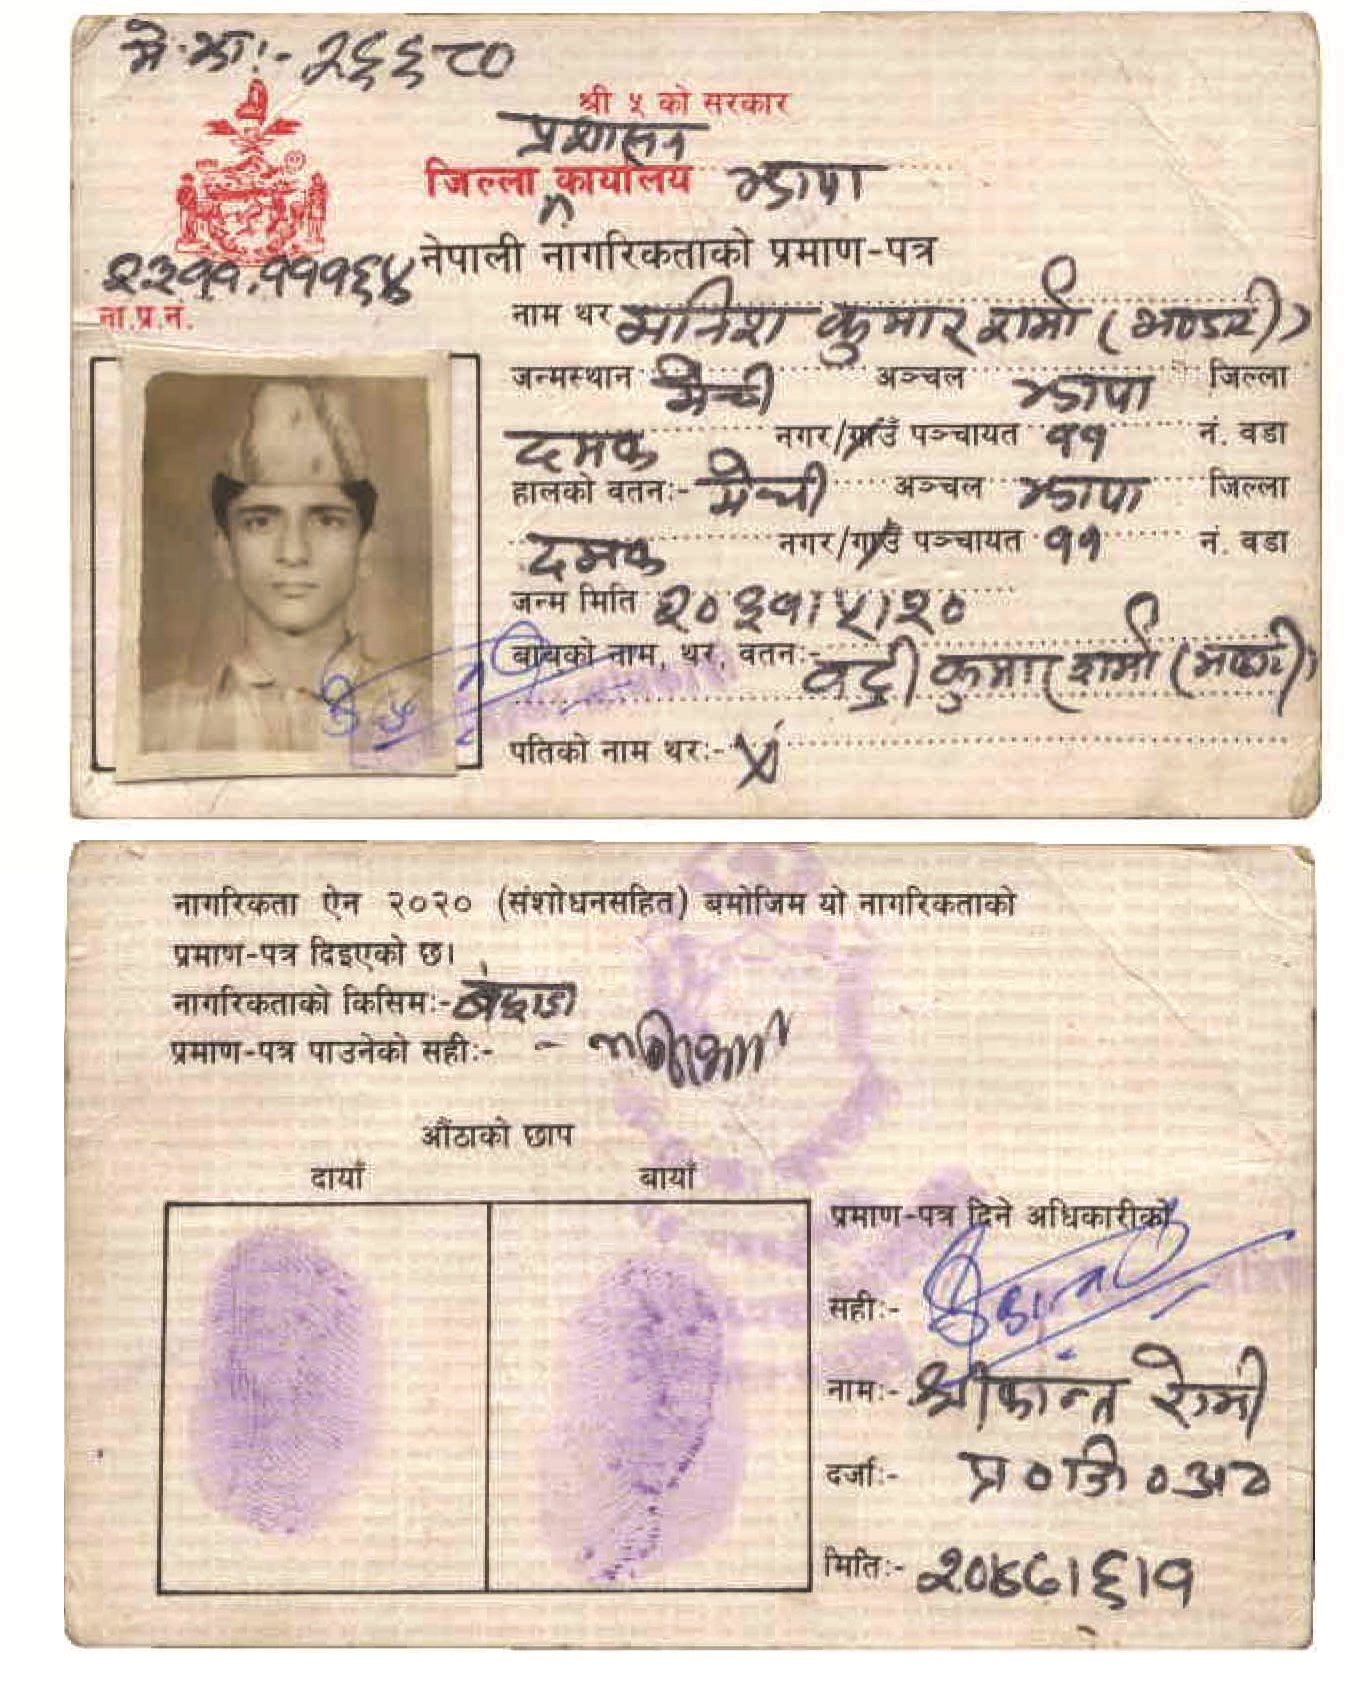 मे.झा.:- २६६८०
श्री ५ को सरकार
प्रशासन
जिल्ला कार्यालय झापा
नेपाली नागरिकताको प्रमाण-पत्र
२३११.१११६४
ना.प्र.नं.
नाम थर मनिश कुमार शर्मा (भण्डारी)
जन्मस्थान मेची अञ्चल झापा जिल्ला
दमक नगर/गाउँ पञ्चायत ११ नं. वडा
हालको वतन:- मेची अञ्चल झापा जिल्ला
दमक नगर/गाउँ पञ्चायत ११ नं. वडा
जन्म मिति २०३१।५।२०
बाबुको नाम, थर, वतन:- बद्री कुमार शर्मा (भण्डारी)
पतिको नाम थर:- X
नागरिकता ऐन २०२० (संशोधनसहित) बमोजिम यो नागरिकताको
प्रमाण-पत्र दिइएको छ।
नागरिकताको किसिम:-
प्रमाण-पत्र पाउनेको सही:-
औंठाको छाप
दायाँ बायाँ
प्रमाण-पत्र दिने अधिकारीको
सही:-
नाम:- श्रीकान्त रेग्मी
दर्जा:- प्र०जि०अ०
मिति:- २०४८।६।१